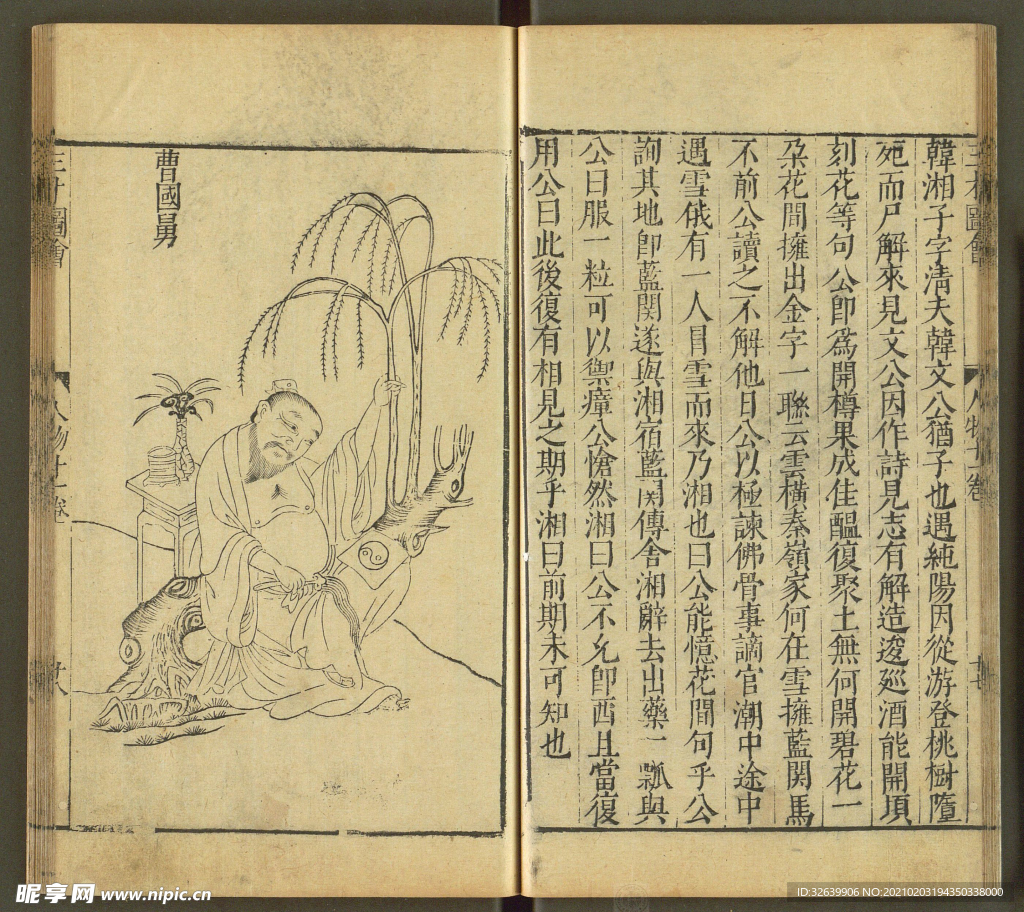 韓湘子字清夫韓文公猶子也遇純陽因從游登桃樹墮
死而尸解來見文公因作詩見志有解造逡廵酒能開頃
刻花等句公卽為開樽果成佳醞復聚土無何開碧花一
朵花間擁出金字一聯云雲橫秦嶺家何在雪擁藍関馬
不前公讀之不解他日公以極諫佛骨事謫官潮中途中
遇雪俄有一人冒雪而來乃湘也曰公能憶花間句乎公
詢其地卽藍関遂與湘宿藍関傳舍湘辭去出藥一瓢與
公曰服一粒可以禦瘴公愴然湘曰公不乆卽西且當復
用公曰此後復有相見之期乎湘曰前期未可知也
三才圖會
人物十一卷
曹國舅
三才圖會
人物十一卷
廿八
昵享网 www.nipic.cn
ID:32639906 NO:20210203194350338000